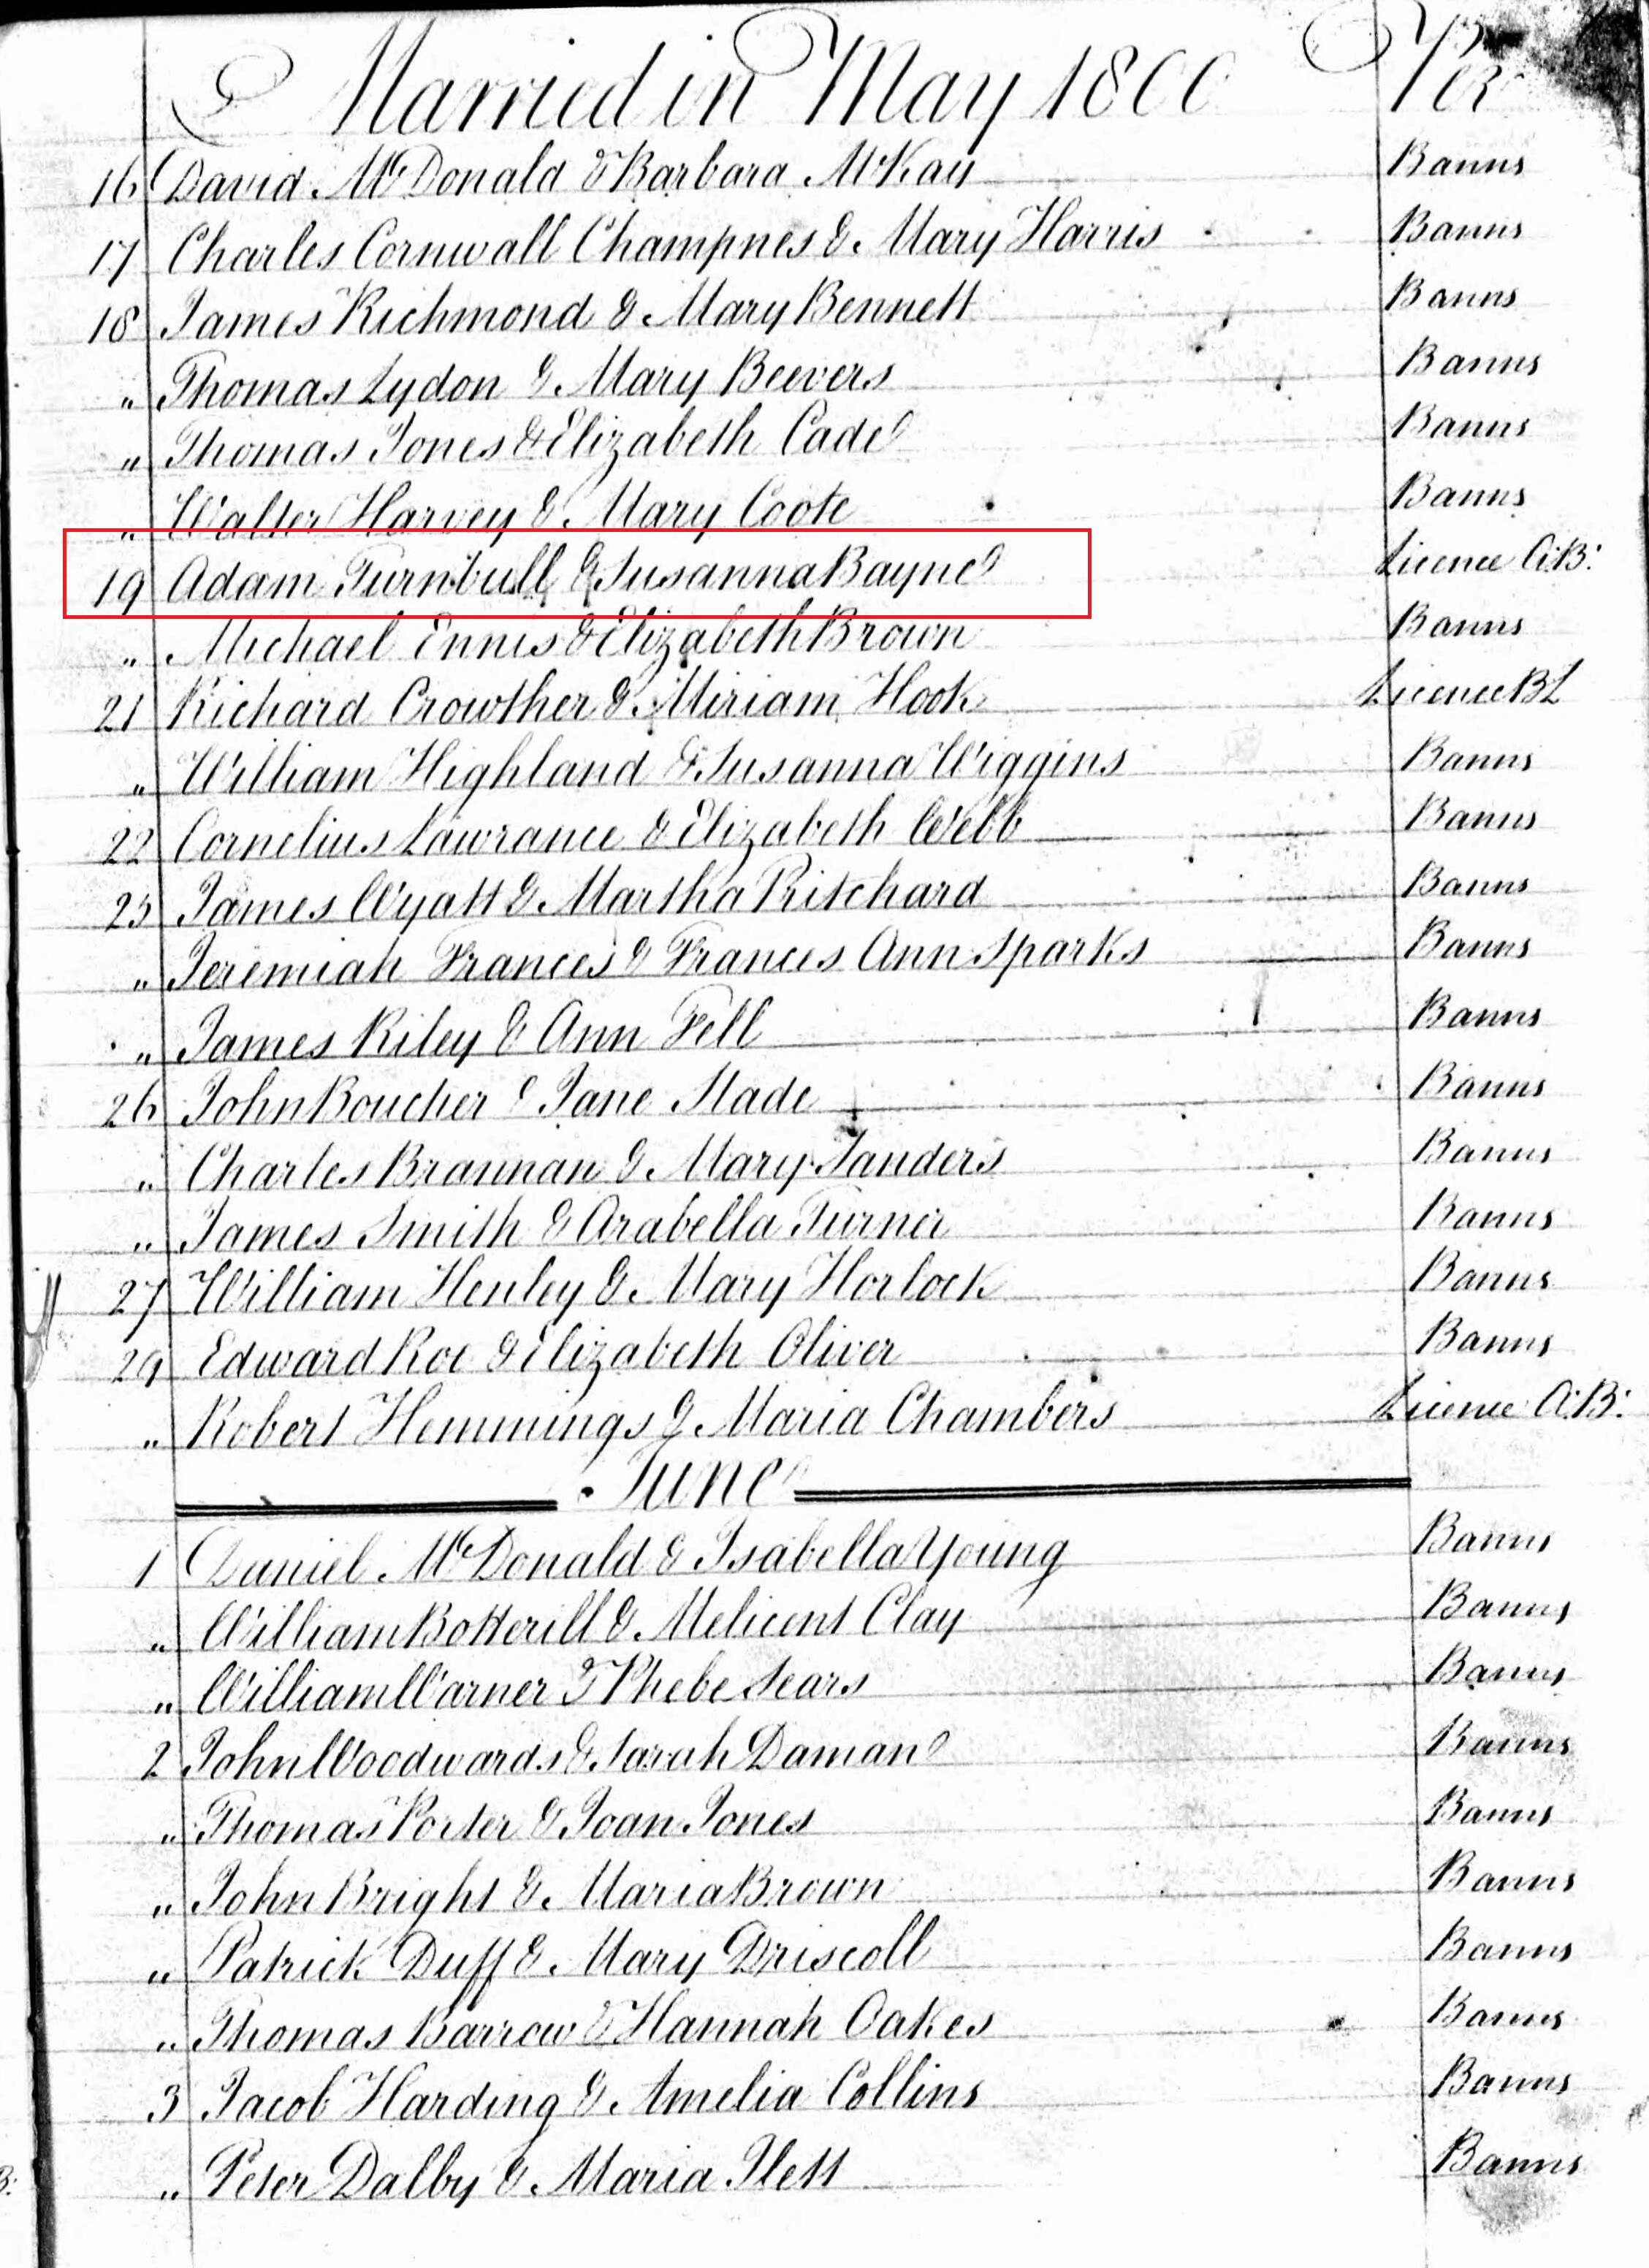 Married in May 1800 Per
16 David McDonald & Barbara McKay Banns
17 Charles Cornwall Champnes & Mary Harris Banns
18 James Richmond & Mary Bennett Banns
" Thomas Lydon & Mary Beevers Banns
" Thomas Jones & Elizabeth Cade Banns
" Walter Harvey & Mary Coote Banns
19 Adam Turnbull & Susanna Bayne Licence A:B:
" Michael Ennis & Elizabeth Brown Banns
21 Richard Crowther & Miriam Hook Licence BL
" William Highland & Susanna Wiggins Banns
22 Cornelius Lawrance & Elizabeth Webb Banns
25 James Wyatt & Martha Pritchard Banns
" Jeremiah Frances & Frances Ann Sparks Banns
" James Riley & Ann Fell Banns
26 John Boucher & Jane Slade Banns
" Charles Brannan & Mary Sanders Banns
" James Smith & Arabella Turner Banns
27 William Henley & Mary Horlock Banns
29 Edward Roe & Elizabeth Oliver Banns
" Robert Hemmings & Maria Chambers Licence A:B:
June
1 Daniel McDonald & Isabella Young Banns
" William Botterill & Melicent Clay Banns
" William Warner & Phebe Sears Banns
2 John Woodwards & Sarah Daman Banns
" Thomas Porter & Joan Jones Banns
" John Bright & Maria Brown Banns
" Patrick Duff & Mary Driscoll Banns
" Thomas Barrow & Hannah Oakes Banns
3 Jacob Harding & Amelia Collins Banns
" Peter Dalby & Maria Ilett Banns